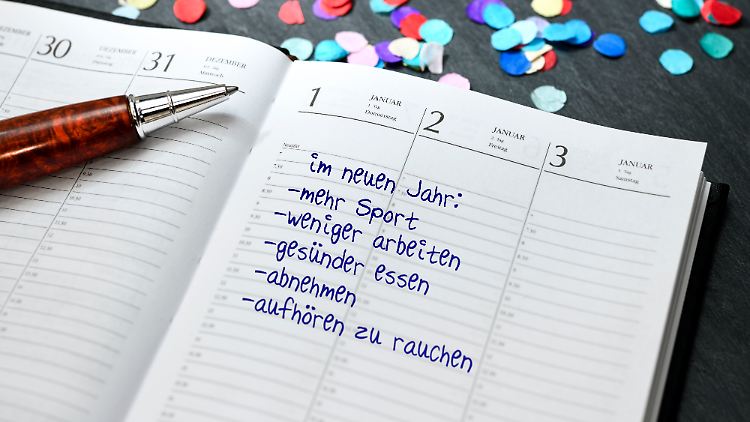 30 DEZEMBER
31 DEZEMBER
Mittwoch
1 JANUAR
1. Tag
Donnerstag
2 JANUAR
2. Tag
Freitag
3 JANUAR
3. Tag
Samstag
im neuen Jahr:
-mehr Sport
-weniger arbeiten
-gesünder essen
-abnehmen
-aufhören zu rauchen